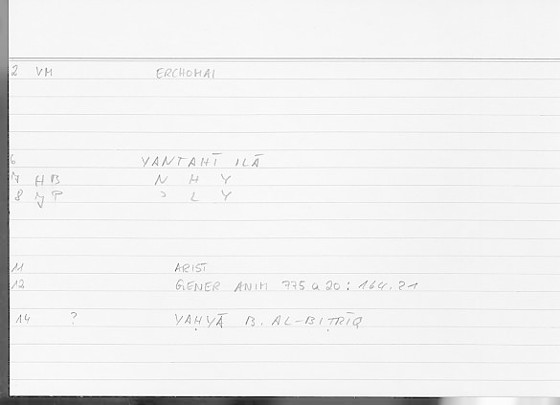 2 VM ERCHOMAI
6 YANTAHĪ ILĀ
7 HB N H Y
8 JP ʾ L Y
11 ARIST
12 GENER ANIM 775 a 20 : 164.21
14 ? YAḤYĀ B. AL-BIṬRĪQ